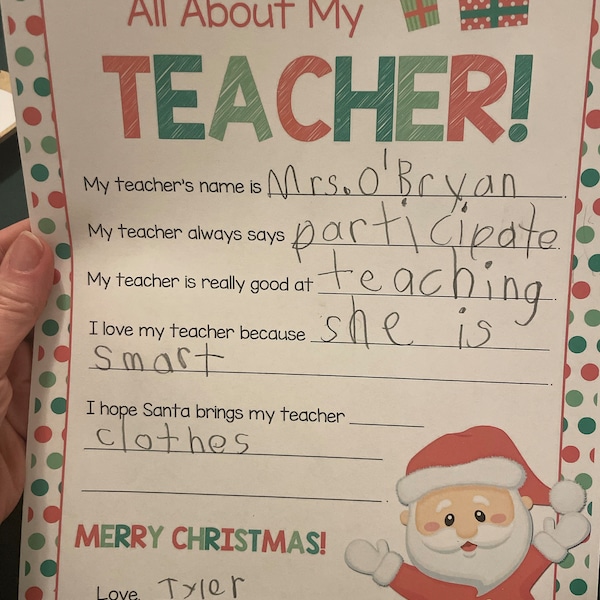 All About My
TEACHER!
My teacher's name is Mrs. O'Bryan.
My teacher always says participate.
My teacher is really good at teaching.
I love my teacher because she is
smart.
I hope Santa brings my teacher
clothes
.
MERRY CHRISTMAS!
Love, Tyler